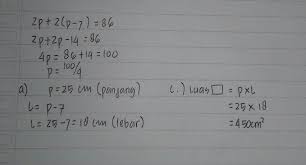 2p + 2(p-7) = 86
2p + 2p - 14 = 86
4p = 86 + 14 = 100
p = 100/4
a) p = 25 cm (panjang)
l = p - 7
l = 25 - 7 = 18 cm (lebar)
c.) luas □ = p x l
= 25 x 18
= 450 cm²